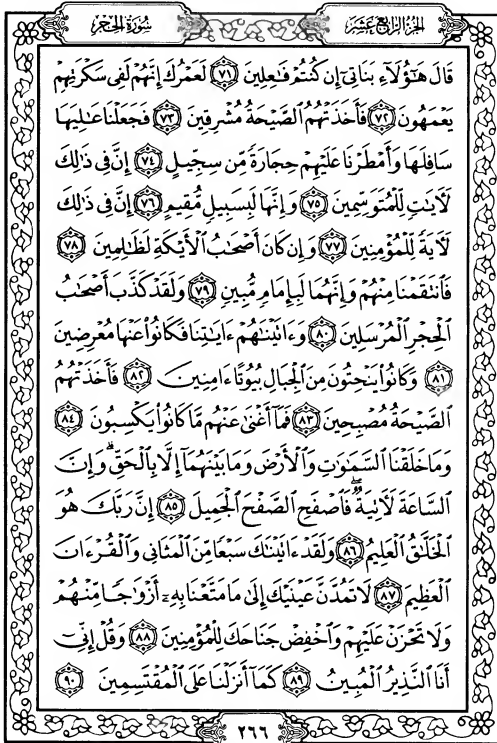 الجزء الرابع عشر
سورة الحجر
قَالَ هَٰٓؤُلَآءِ بَنَاتِىٓ إِن كُنتُمْ فَٰعِلِينَ ٧١ لَعَمْرُكَ إِنَّهُمْ لَفِى سَكْرَتِهِمْ
يَعْمَهُونَ ٧٢ فَأَخَذَتْهُمُ ٱلصَّيْحَةُ مُشْرِقِينَ ٧٣ فَجَعَلْنَا عَٰلِيَهَا
سَافِلَهَا وَأَمْطَرْنَا عَلَيْهِمْ حِجَارَةً مِّن سِجِّيلٍ ٧٤ إِنَّ فِى ذَٰلِكَ
لَءَايَٰتٍ لِّلْمُتَوَسِّمِينَ ٧٥ وَإِنَّهَا لَبِسَبِيلٍ مُّقِيمٍ ٧٦ إِنَّ فِى ذَٰلِكَ
لَءَايَةً لِّلْمُؤْمِنِينَ ٧٧ وَإِن كَانَ أَصْحَٰبُ ٱلْأَيْكَةِ لَظَٰلِمِينَ ٧٨
فَٱنتَقَمْنَا مِنْهُمْ وَإِنَّهُمَا لَبِإِمَامٍ مُّبِينٍ ٧٩ وَلَقَدْ كَذَّبَ أَصْحَٰبُ
ٱلْحِجْرِ ٱلْمُرْسَلِينَ ٨٠ وَءَاتَيْنَٰهُمْ ءَايَٰتِنَا فَكَانُوا۟ عَنْهَا مُعْرِضِينَ
٨١ وَكَانُوا۟ يَنْحِتُونَ مِنَ ٱلْجِبَالِ بُيُوتًا ءَامِنِينَ ٨٢ فَأَخَذَتْهُمُ
ٱلصَّيْحَةُ مُصْبِحِينَ ٨٣ فَمَآ أَغْنَىٰ عَنْهُم مَّا كَانُوا۟ يَكْسِبُونَ ٨٤
وَمَا خَلَقْنَا ٱلسَّمَٰوَٰتِ وَٱلْأَرْضَ وَمَا بَيْنَهُمَآ إِلَّا بِٱلْحَقِّ ۗ وَإِنَّ
ٱلسَّاعَةَ لَءَاتِيَةٌ ۖ فَٱصْفَحِ ٱلصَّفْحَ ٱلْجَمِيلَ ٨٥ إِنَّ رَبَّكَ هُوَ
ٱلْخَلَّٰقُ ٱلْعَلِيمُ ٨٦ وَلَقَدْ ءَاتَيْنَٰكَ سَبْعًا مِّنَ ٱلْمَثَانِى وَٱلْقُرْءَانَ
ٱلْعَظِيمَ ٨٧ لَا تَمُدَّنَّ عَيْنَيْكَ إِلَىٰ مَا مَتَّعْنَا بِهِۦٓ أَزْوَٰجًا مِّنْهُمْ
وَلَا تَحْزَنْ عَلَيْهِمْ وَٱخْفِضْ جَنَاحَكَ لِلْمُؤْمِنِينَ ٨٨ وَقُلْ إِنِّىٓ
أَنَا ٱلنَّذِيرُ ٱلْمُبِينُ ٨٩ كَمَآ أَنزَلْنَا عَلَى ٱلْمُقْتَسِمِينَ ٩٠
٢٦٦